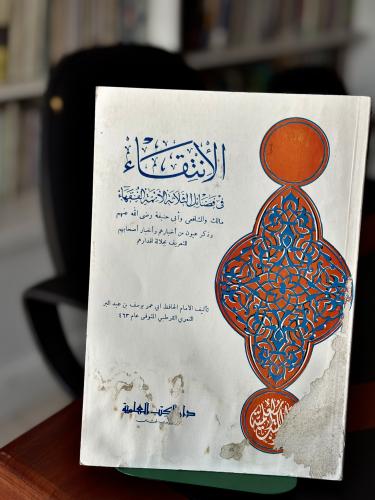 الإنتقاء
في فضائل الثلاثة الأئمة الفقهاء
مالك والشافعي وأبي حنيفة رضي الله عنهم
وذكر عيون من أخبارهم وأخبار أصحابهم
للتعريف بجلالة أقدارهم
تأليف الامام الحافظ أبي عمر يوسف بن عبد البر
النمري القرطبي المتوفى عام ٤٦٣
دار الكتب العلمية